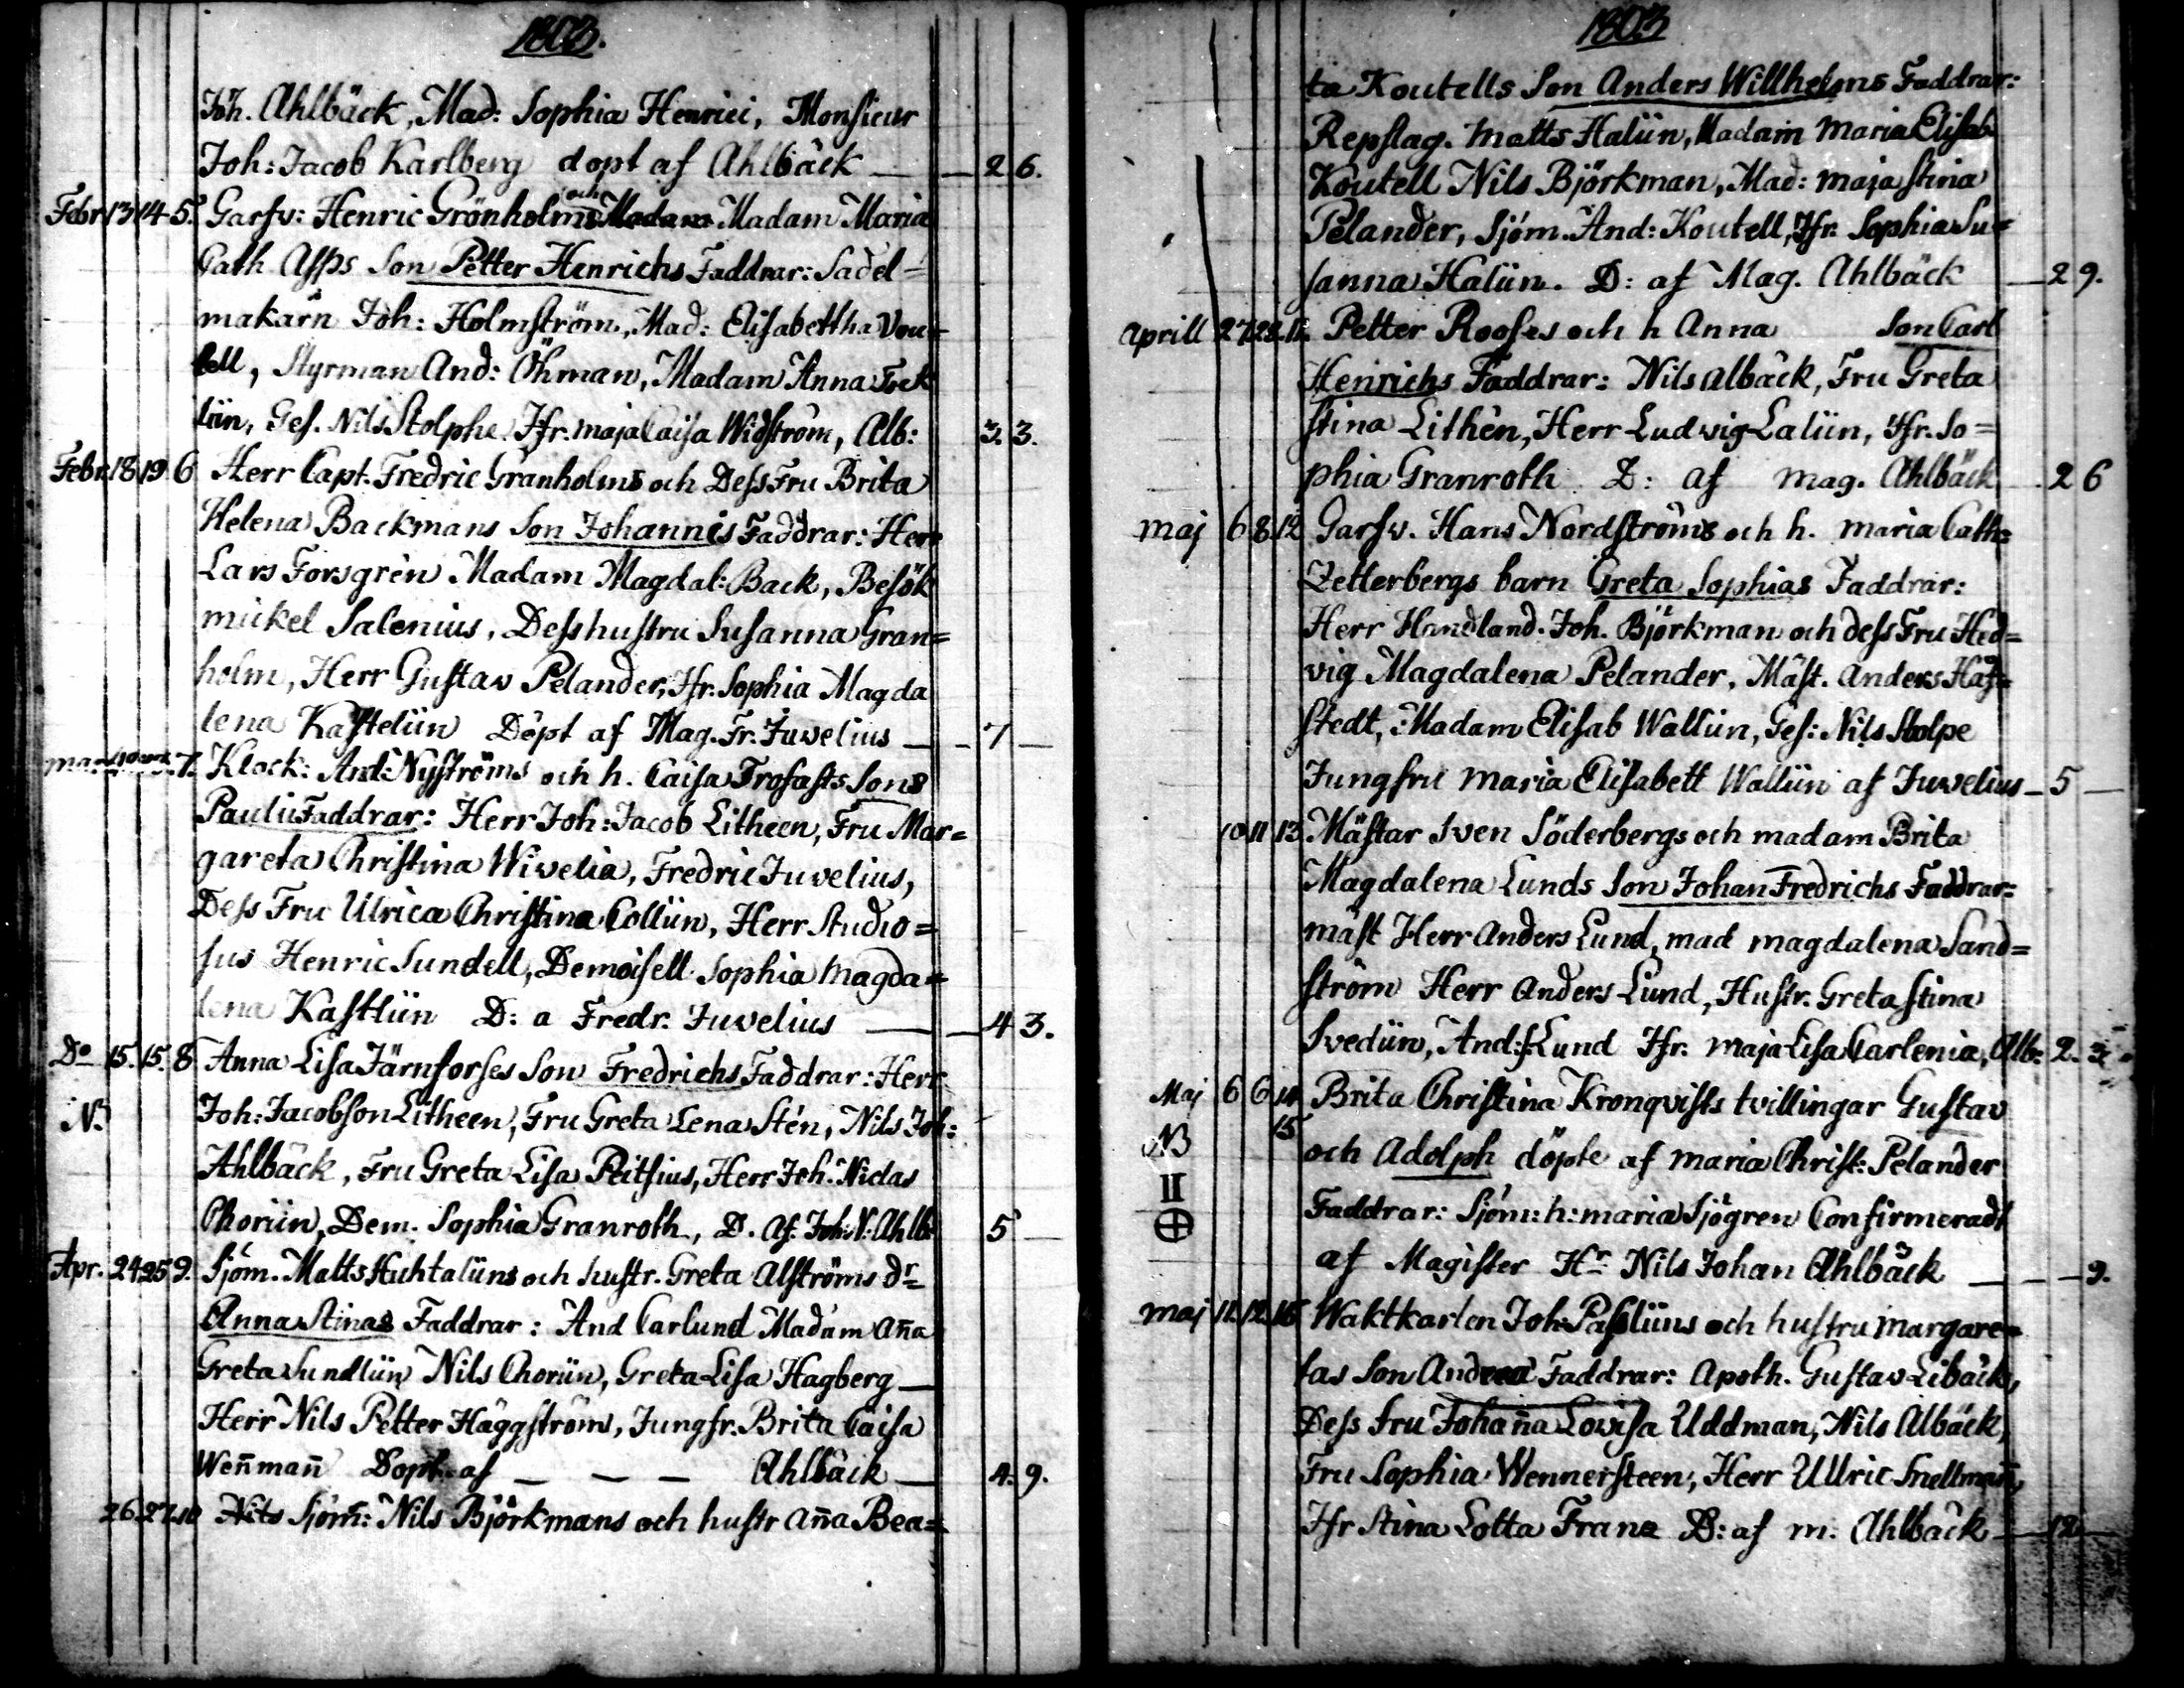 1803.
Joh. Ahlbäck, Mad: Sophia Henrici, Monsieur
Joh: Jacob Karlberg döpt af Ahlbäck — 2 6.
Febr 13 14 5. Garfv: Henric Grönholms och Madam Maria
Cath Asps Son Petter Henrichs Faddrar: Sadel=
makarn Joh: Holmström, Mad: Elisabettha
, Styrman And: Öhman, Madam Anna
, Ges. Nils Stolphe Jfr. maja Caisa Widström, Alb: 3. 3.
Febr. 18 19 6 Herr Capt. Fredric Granholms och Dess Fru Brita
Helena Backmans Son Johannis Faddrar: Herr
Lars Forsgrèn Madam Magdal: Back, Besök
mickel Salenius, Dess hustru Susanna Gran=
holm, Herr Gustav Pelander, Jfr. Sophia Magda
lena Kastelün Döpt af Mag. Fr. Juvelius — 7 —
7. Klock: And: Nyströms och h. Caisa Trofasts Sons
Pauli Faddrar: Herr Joh: Jacob Litheen, Fru Mar=
gareta Christina Wivelia, Fredric Juvelius,
Dess Fru Ulrica Christina Collün, Herr Studio=
sus Henric Sundell, Demoisell Sophia Magda=
lena Kastlün D: a Fredr. Juvelius — 4 3.
Do 15. 15. 8 Anna Lisa Järnforses Son Fredrichs Faddrar: Herr
N. Joh: Jacobson Litheen, Fru Greta Lena Stén, Nils Joh:
Ahlbäck, Fru Greta Lisa Peitsius, Herr Joh. Niclas
Chorün, Dem: Sophia Granroth, D. af. Joh: N: Ahlb: 5 —
Apr. 24 25 9. Sjöm. Matts Huhtalüns och hustr. Greta Alströms dr=
Anna Stinas Faddrar: And Carlund Madam Aña
Greta Sundlün Nils Chorün, Greta Lisa Hagberg —
Herr Nils Petter Häggström, Jungfr. Brita Caisa
Weñmañ Döpt af — — — Ahlbäck — 4. 9.
26. 27. 10 Nils Sjöm: Nils Björkmans och hustr Aña Bea=
1803
ta Koutells Son Anders Willhelms Faddrar:
Repslag. Matts Halün, Madam Maria Elisab
Koutell Nils Björkman, Mad: maja stina
Pelander, Sjöm. And: Koutell, Jfr. Sophia Su=
sanna Halün. D: af Mag. Ahlbäck — 2 9.
Aprill 27. 28. 11. Petter Rooses och h Anna Son Carl
Henrichs Faddrar: Nils Albäck, Fru Greta
Stina Lithén, Herr Ludvig Lalün, Jfr. So=
phia Granroth D: af mag. Ahlbäck 2 6
Maj 6 8 12 Garfv. Hans Nordströms och h. maria Cath=
Zetterbergs barn Greta Sophias Faddrar:
Herr Handland. Joh. Björkman och dess Fru Hed=
vig Magdalena Pelander, Mäst. Anders Häg=
stedt, Madam Elisab Wallün, Ges: Nils Stolpe
Jungfru Maria Elisabett Wallün af Juvelius — 5 —
10 11 13. Mästar Sven Söderbergs och madam Brita
Magdalena Lunds Son Johan Fredrichs Faddrar=
mäst Herr Anders Lund, mad magdalena Sand=
ström Herr Anders Lund, Hustr. Greta Stina
Svedün, And: Lund Jfr. maja Lisa Carlenia, Alb: 2. 3.
Maj 6 6 14 Brita Christina Kronqvists tvillingar Gustav
NB 15 och Adolph döpte af maria Christ: Pelander
II Faddrar: Sjöm: h: maria Sjögren Confirmeradt
af Magister Hr Nils Johan Ahlbäck — — — 9.
Maj 11. 12. 16 Waktkarlen Joh: Passlüns och hustru Margare=
tas Son Faddrar: Apoth. Gustav Libäck,
Dess fru Johaña Lovisa Uddman, Nils Albäck,
Fru Sophia Wennersteen, Herr Ullric Snellmañ,
Jfr Stina Lotta Franz D: af m: Ahlbäck — 12